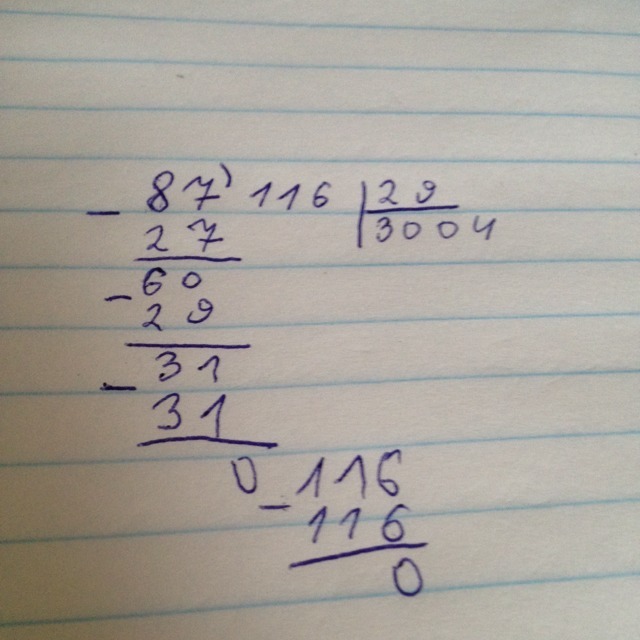 87)116 29
27 3004
- 60
29
- 31
31
0 116
- 116
0